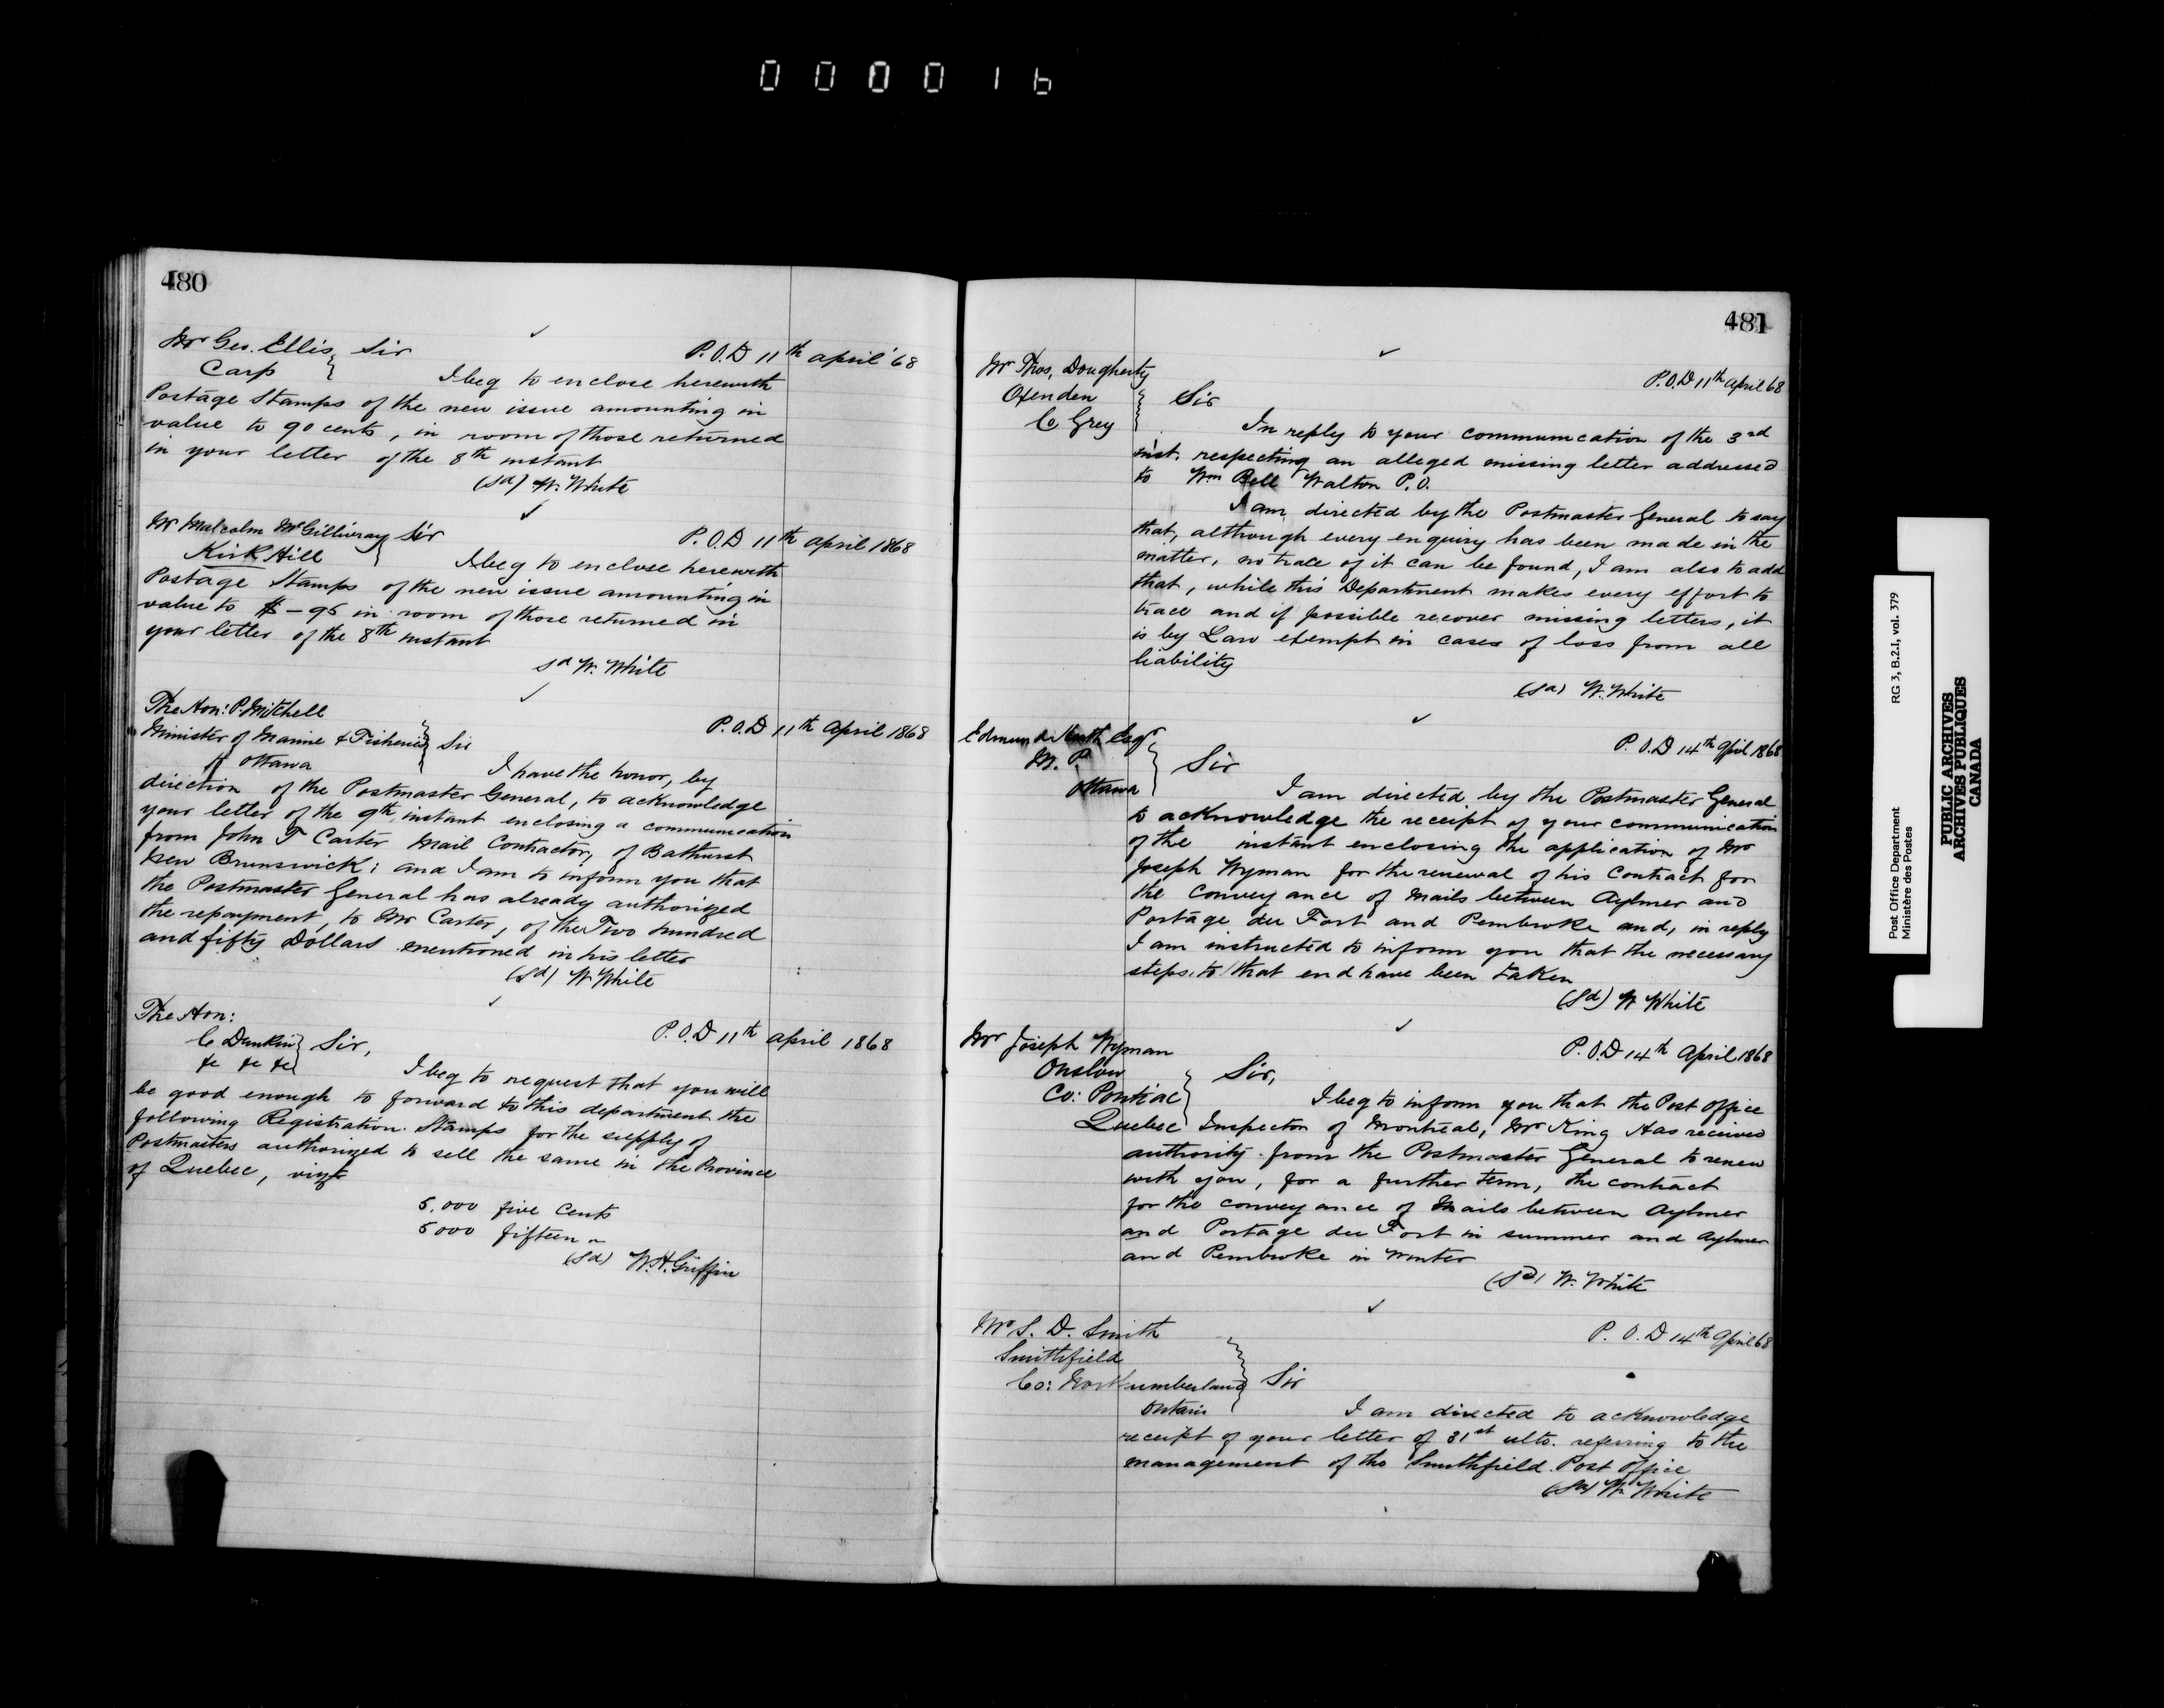 000016
480
Mr Geo. Ellis Sir
Carp
P.O.D 11th April '68
I beg to enclose herewith
Postage Stamps of the new issue amounting in
value to 90 cents, in room of those returned
in your letter of the 8th instant
(Sd) W. White
Mr Malcolm McGillivray Sir
Kirk Hill
P.O.D 11th April 1868
I beg to enclose herewith
Postage Stamps of the new issue amounting in
value to $ – 95 in room of those returned in
your letter of the 8th instant
sd W. White
The Hon: P. Mitchell
Minister of Marine & Fisheries Sir
Ottawa
P.O.D 11th April 1868
I have the honor, by
direction of the Postmaster General, to acknowledge
your letter of the 9th instant enclosing a communication
from John T Carter Mail Contractor, of Bathurst
New Brunswick; and I am to inform you that
the Postmaster General has already authorized
the repayment, to Mr Carter, of the Two hundred
and fifty Dollars mentioned in his letter
(Sd) W. White
The Hon:
C Dunkin Sir,
&c &c &c
P.O.D 11th April 1868
I beg to request that you will
be good enough to forward to this department the
following Registration Stamps for the supply of
Postmasters authorized to sell the same in the Province
of Quebec, vizt
5,000 five Cents
5000 fifteen "
(Sd) W. H. Griffin
481
Mr Thos, Dougherty
Oxenden
C Grey
Sir
P.O.D 11th April 68
In reply to your communication of the 3rd
inst. respecting an alleged missing letter addressed
to Wm Bell Walton P.O.
I am directed by the Postmaster General to say
that, although every enquiry has been made in the
matter, no trace of it can be found, I am also to add
that, while this Department makes every effort to
trace and if possible recover missing letters, it
is by Law exempt in cases of loss from all
liability
(Sd) W. White
Edmund Heath Esqr
M. P.
Ottawa
Sir
P.O.D 14th April 1868
I am directed by the Postmaster General
to acknowledge the receipt of your communication
of the instant enclosing the application of Mr
Joseph Wyman for the renewal of his Contract for
the conveyance of Mails between Aylmer and
Portage du Fort and Pembroke and, in reply
I am instructed to inform you that the necessary
steps to that end have been taken
(Sd) W White
Mr Joseph Wyman
Onslow
Co: Pontiac
Sir,
P.O.D 14th April 1868
I beg to inform you that the Post Office
Quebec Inspector of Montreal, Mr King Has received
authority from the Postmaster General to renew
with you, for a further term, the contract
for the conveyance of Mails between Aylmer
and Portage du Fort in summer and Aylmer
and Pembroke in Winter
(Sd) W. White
Mr S. D. Smith
Smithfield
Co: Northumberland Sir
Ontario
P.O.D 14th April 68
I am directed to acknowledge
receipt of your letter of 31st ulto. referring to the
management of the Smithfield Post Office
(Sd) W. White
Post Office Department RG 3, B.2.I, vol. 379
Ministère des Postes
PUBLIC ARCHIVES
ARCHIVES PUBLIQUES
CANADA